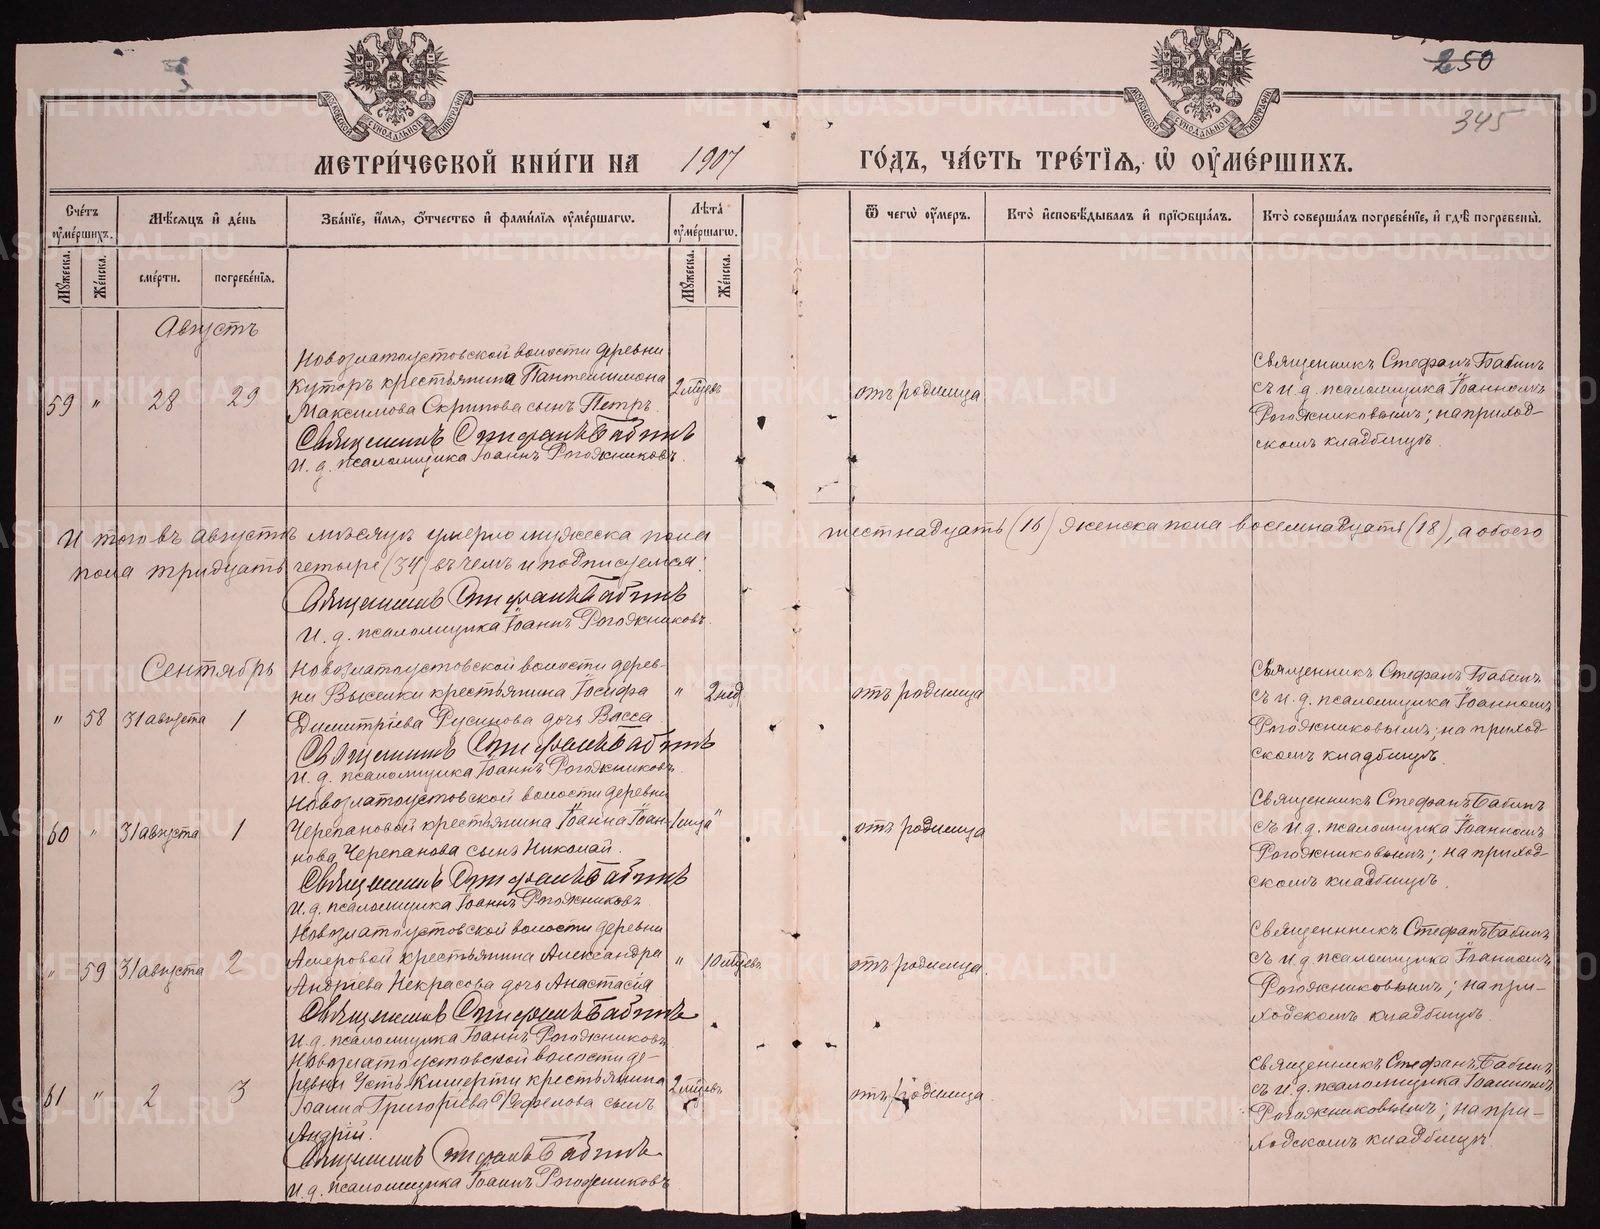 250
345
МОСКОВСКОЙ СУНОДАЛЬНОЙ ТИПОГРАФІИ
МОСКОВСКОЙ СУНОДАЛЬНОЙ ТИПОГРАФІИ
МЕТРИ́ЧЕСКОЙ КНИ́ГИ НА 1907 ГО́ДЪ, ЧА́СТЬ ТРЕ́ТІЯ, Ѡ҆ ОУ҆МЕ́РШИХЪ.
Сче́тъ оу҆ме́ршихъ.
Мꙋ́жеска.
Же́нска.
Мѣ́сяцъ и҆ де́нь
сме́рти.
погребе́нія.
Зва́ніе, и҆́мя, ѻ҆́тчество и҆ фами́лія оу҆ме́ршагѡ.
Лѣта̀ оу҆ме́ршагѡ.
Мꙋ́жеска.
Же́нска.
Ѿ чегѡ̀ оу҆́меръ.
Кто̀ и҆сповѣ́дывалъ и҆ пріѻбща́лъ.
Кто̀ соверша́лъ погребе́ніе, и҆ гдѣ̀ погребены̀.
Августъ
59 " 28 29
Новозлатоустовской волости деревни
Куторъ крестьянина Пантелимона
Максимова Скрипова сынъ Петръ.
Священникъ Стефанъ Бабинъ
И. д. псаломщика Іоаннъ Рогожниковъ.
2 мѣсцъ
отъ родимца
Священникъ Стефанъ Бабинъ
съ и. д. псаломщика Іоанномъ
Рогожниковымъ; на приход-
скомъ кладбищѣ.
И того въ августѣ мѣсяцѣ умерло мужеска пола шестнадцать (16) женска пола восемнадцать (18), а обоего
пола тридцать четыре (34) въ чемъ и подписуемся:
Священникъ Стефанъ Бабинъ
И. д. псаломщика Іоаннъ Рогожниковъ.
Сентябрь
" 58 31 августа 1
Новозлатоустовской волости дерев-
ни Выселки крестьянина Іосифа
Димитріева Русинова дочь Васса.
Священникъ Стефанъ Бабинъ
И. д. псаломщика Іоаннъ Рогожниковъ.
" 2 нед
отъ родимца
Священникъ Стефанъ Бабинъ
съ и. д. псаломщика Іоанномъ
Рогожниковымъ; на приход-
скомъ кладбищѣ.
60 " 31 августа 1
Новозлатоустовской волости деревни
Черепановой крестьянина Іоанна Іоан-
нова Черепанова сынъ Николай.
Священникъ Стефанъ Бабинъ
И. д. псаломщика Іоаннъ Рогожниковъ.
"
отъ родимца
Священникъ Стефанъ Бабинъ
съ и. д. псаломщика Іоанномъ
Рогожниковымъ; на приход-
скомъ кладбищѣ.
" 59 31 августа 2
Новозлатоустовской волости деревни
Амеровой крестьянина Александра
Андріева Некрасова дочь Анастасія
Священникъ Стефанъ Бабинъ
И. д. псаломщика Іоаннъ Рогожниковъ.
" 10 мѣсцевъ
отъ родимца.
Священникъ Стефанъ Бабинъ
съ и. д. псаломщика Іоанномъ
Рогожниковымъ; на при-
ходскомъ кладбищѣ.
61 " 2 3
Новозлатоустовской волости де-
ревни Усть-Кишерти крестьянина
Іоанна Григоріева сынъ
Андрій.
Священникъ Стефанъ Бабинъ
И. д. псаломщика Іоаннъ Рогожниковъ
2 мѣсцевъ
отъ родимца
Священникъ Стефанъ Бабинъ
съ и. д. псаломщика Іоанномъ
Рогожниковымъ; на при-
ходскомъ кладбищѣ.
METRIKI.GASO-URAL.RU